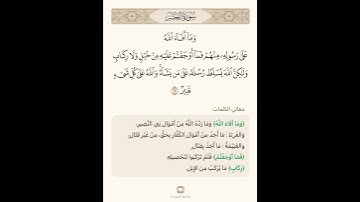 سُورَةُ الحَشْرِ
وَمَا أَفَاءَ اللَّهُ
عَلَىٰ رَسُولِهِ مِنْهُمْ فَمَا أَوْجَفْتُمْ عَلَيْهِ مِنْ خَيْلٍ وَلَا رِكَابٍ
وَلَٰكِنَّ اللَّهَ يُسَلِّطُ رُسُلَهُ عَلَىٰ مَن يَشَاءُ وَاللَّهُ عَلَىٰ كُلِّ شَيْءٍ
قَدِيرٌ ٦
معاني الكلمات
﴿وَمَا أَفَاءَ اللَّهُ﴾ وَمَا رَدَّهُ اللَّهُ مِنْ أَمْوَالِ بَنِي النَّضِيرِ،
وَالفَيْءُ: مَا أُخِذَ مِنْ أَمْوَالِ الكُفَّارِ بِحَقٍّ، مِنْ غَيْرِ قِتَالٍ،
وَالغَنِيمَةُ: مَا أُخِذَ بِقِتَالٍ.
﴿فَمَا أَوْجَفْتُمْ﴾ فَلَمْ تَرْكَبُوا لِتَحْصِيلِهِ
﴿رِكَابٍ﴾ مَا يُرْكَبُ مِنَ الإِبِلِ.